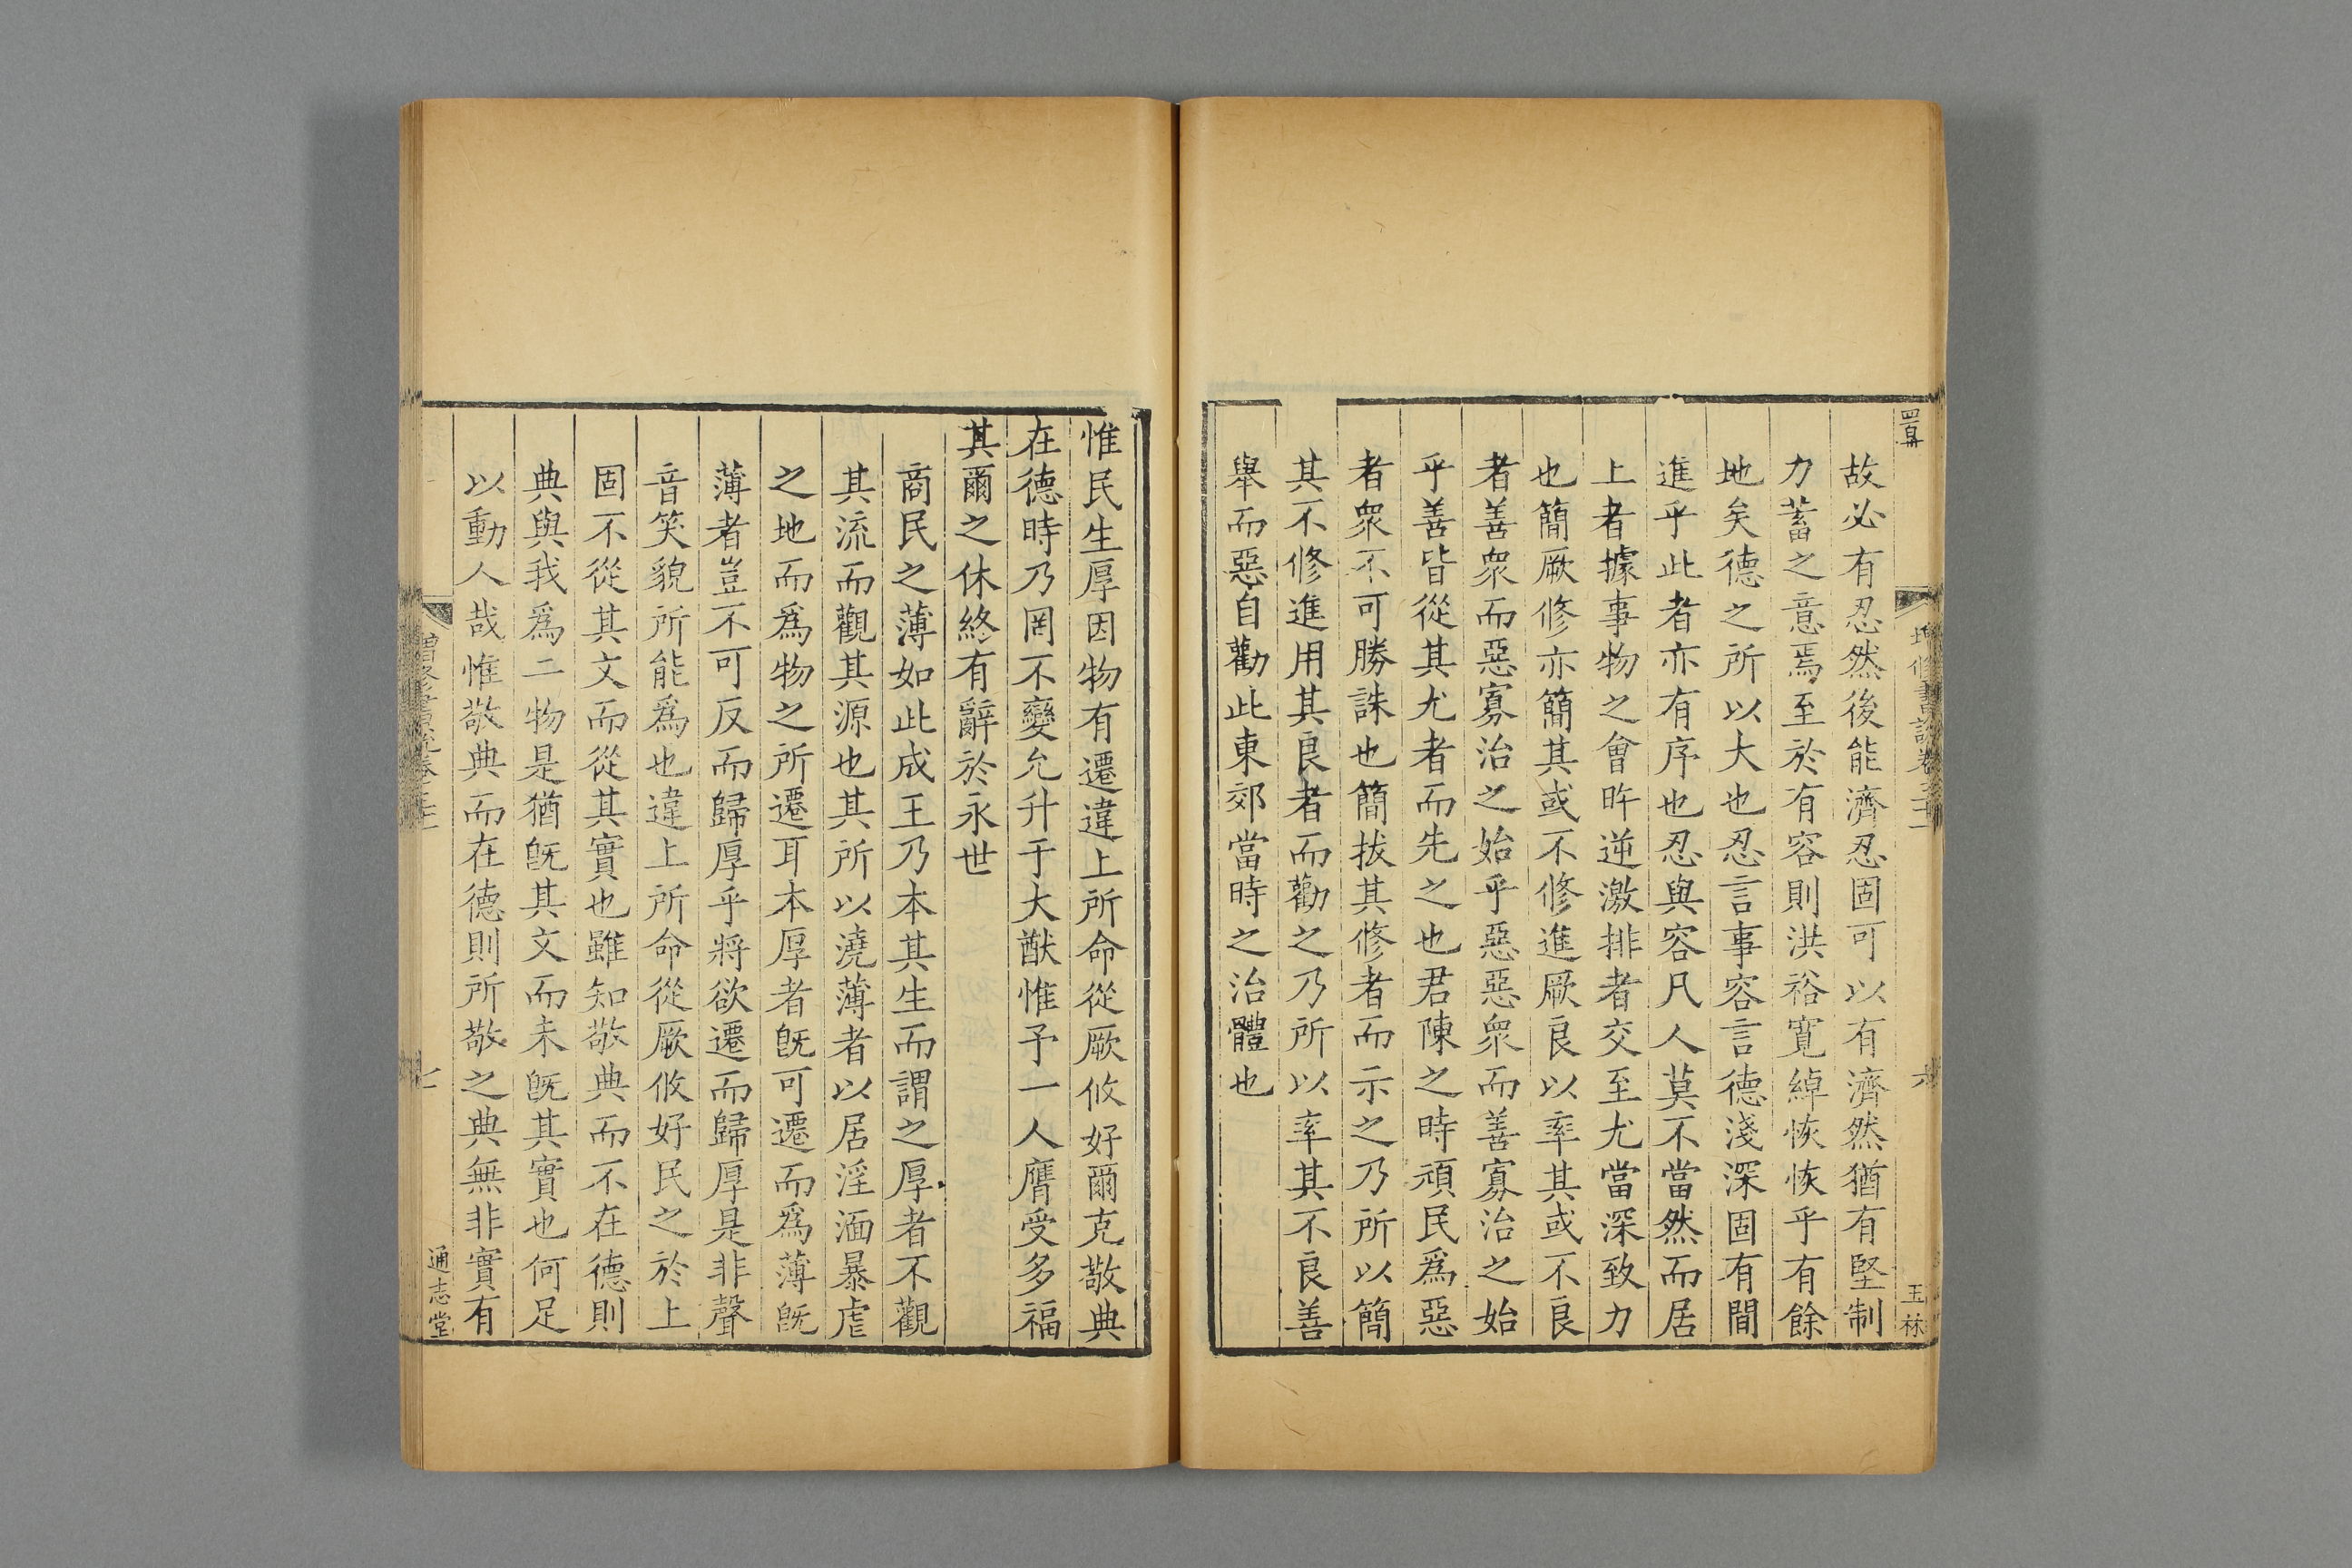 故必有忍然後能濟忍固可以有濟然猶有堅制
力蓄之意焉至於有容則洪裕寬綽恢恢乎有餘
地矣德之所以大也忍言事容言德淺深固有間
進乎此者亦有序也忍與容凡人莫不當然而居
上者據事物之會旿逆激排者交至尤當深致力
也簡厥修亦簡其或不修進厥良以率其或不良
者善衆而惡寡治之始乎惡惡衆而善寡治之始
乎善皆從其尤者而先之也君陳之時頑民爲惡
者衆不可勝誅也簡拔其修者而示之乃所以簡
其不修進用其良者而勸之乃所以率其不良善
舉而惡自勸此東郊當時之治體也
惟民生厚因物有遷違上所命從厥攸好爾克敬典
在德時乃罔不變允升于大猷惟予一人膺受多福
其爾之休終有辭於永世
商民之薄如此成王乃本其生而謂之厚者不觀
其流而觀其源也其所以澆薄者以居淫湎暴虐
之地而爲物之所遷耳本厚者旣可遷而爲薄旣
薄者豈不可反而歸厚乎將欲遷而歸厚是非聲
音笑貌所能爲也違上所命從厥攸好民之於上
固不從其文而從其實也雖知敬典而不在德則
典與我爲二物是猶旣其文而未旣其實也何足
以動人哉惟敬典而在德則所敬之典無非實有
通志堂